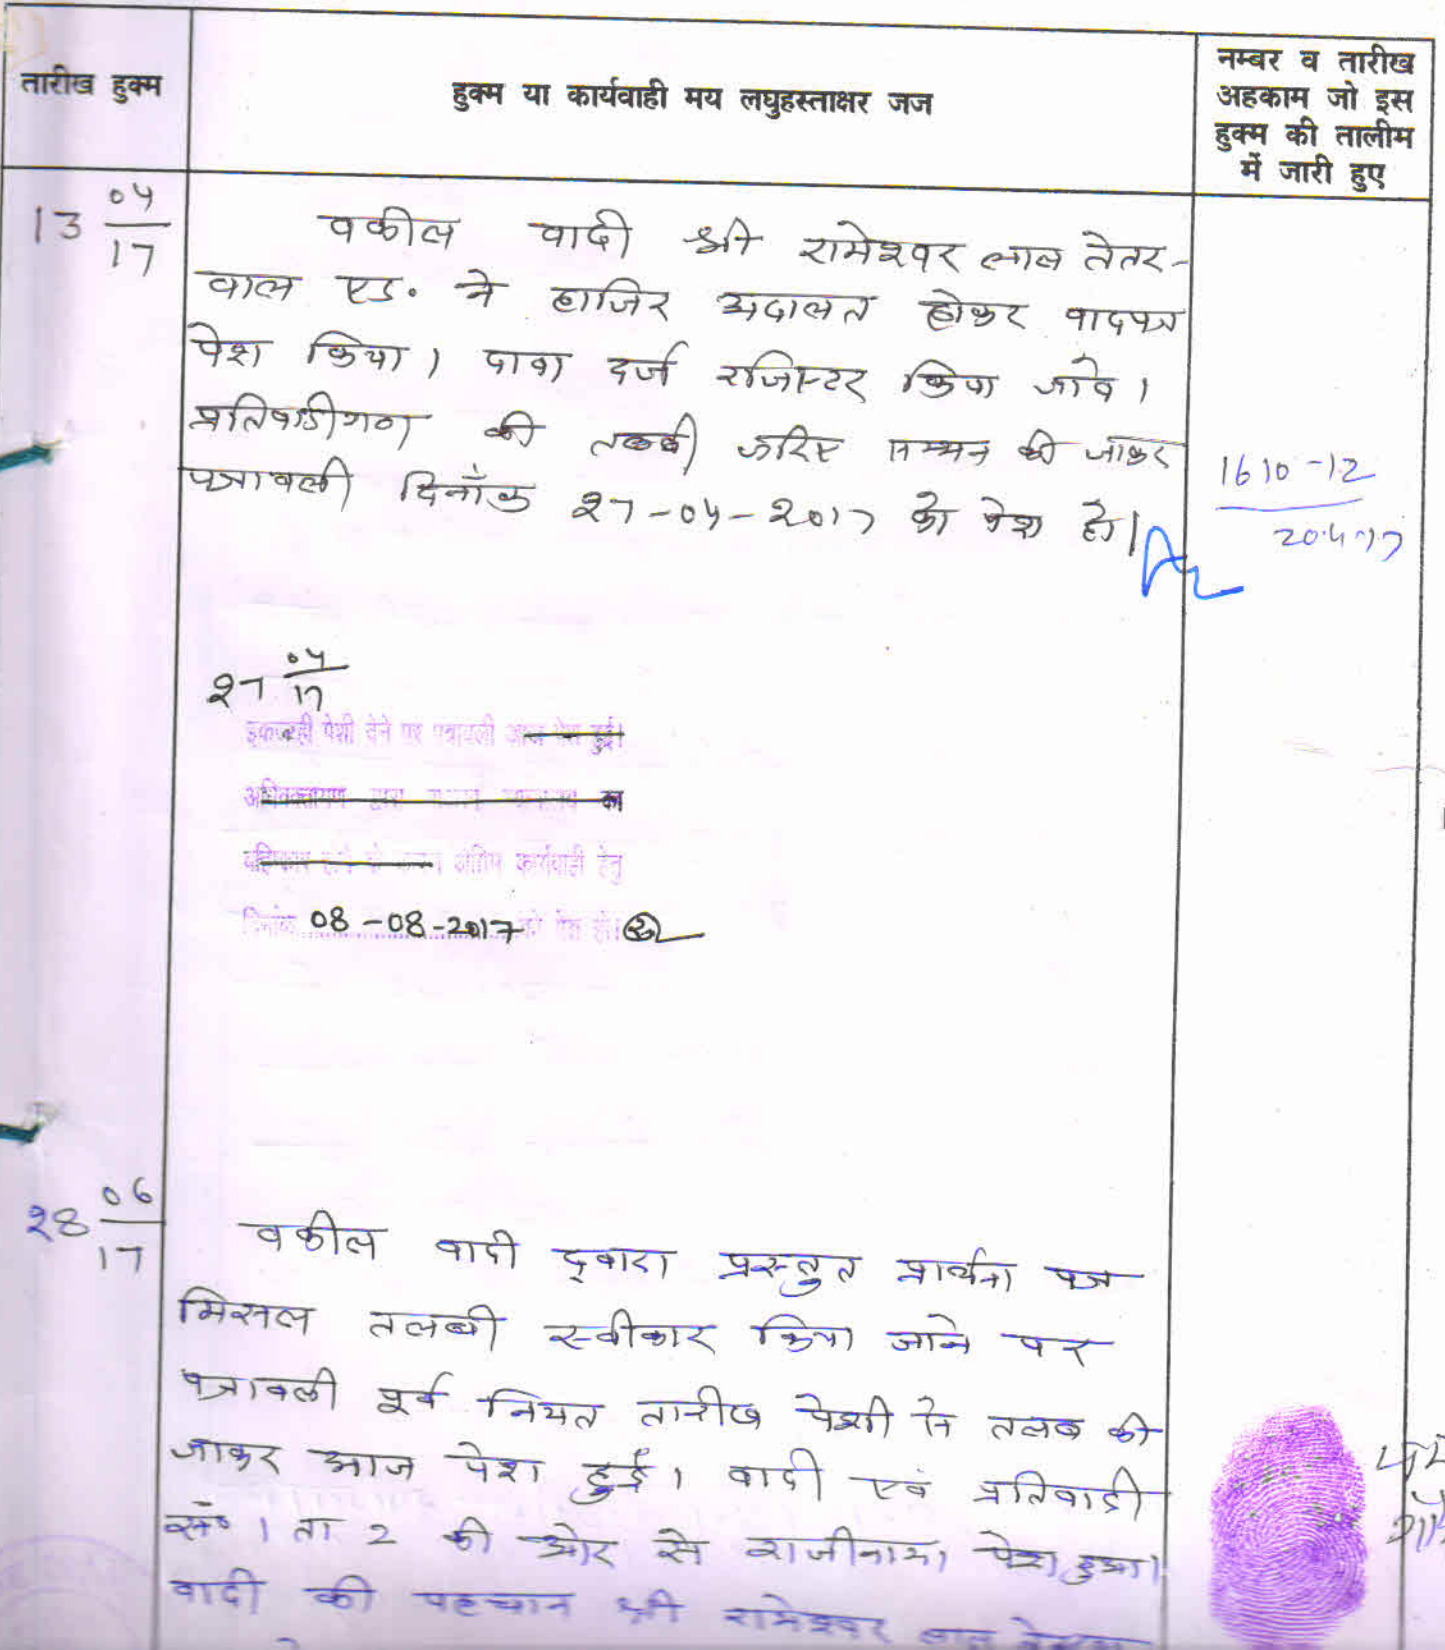 तारीख हुक्म
हुक्म या कार्यवाही मय लघुहस्ताक्षर जज
नम्बर व तारीख
अहकाम जो इस
हुक्म की तालीम
में जारी हुए
13 04/17
वकील वादी श्री रामेश्वर लाल तेतर-
वाल एड. ने हाजिर अदालत होकर वादपत्र
पेश किया। दावा दर्ज रजिस्टर किया जावे।
प्रतिवादीगण की तलबी जरिए सम्मन की जाकर
पत्रावली दिनाँक 27-04-2017 को पेश हो।
1610-12
20.4.17
27 04/17
इकजाही पेशी देने पर पत्रावली आज पेश हुई।
अधिवक्तागण द्वारा न्यायालय का
बहिष्कार होने के कारण अंतिम कार्यवाही हेतु
दिनांक 08-08-2017 को पेश हो।
28 06/17
वकील वादी द्वारा प्रस्तुत प्रार्थना पत्र
मिसल तलबी स्वीकार किया जाने पर
पत्रावली पूर्व नियत तारीख पेशी से तलब की
जाकर आज पेश हुई। वादी एवं प्रतिवादी
सं० 1 ता 2 की ओर से राजीनामा पेश हुआ।
वादी की पहचान श्री रामेश्वर लाल